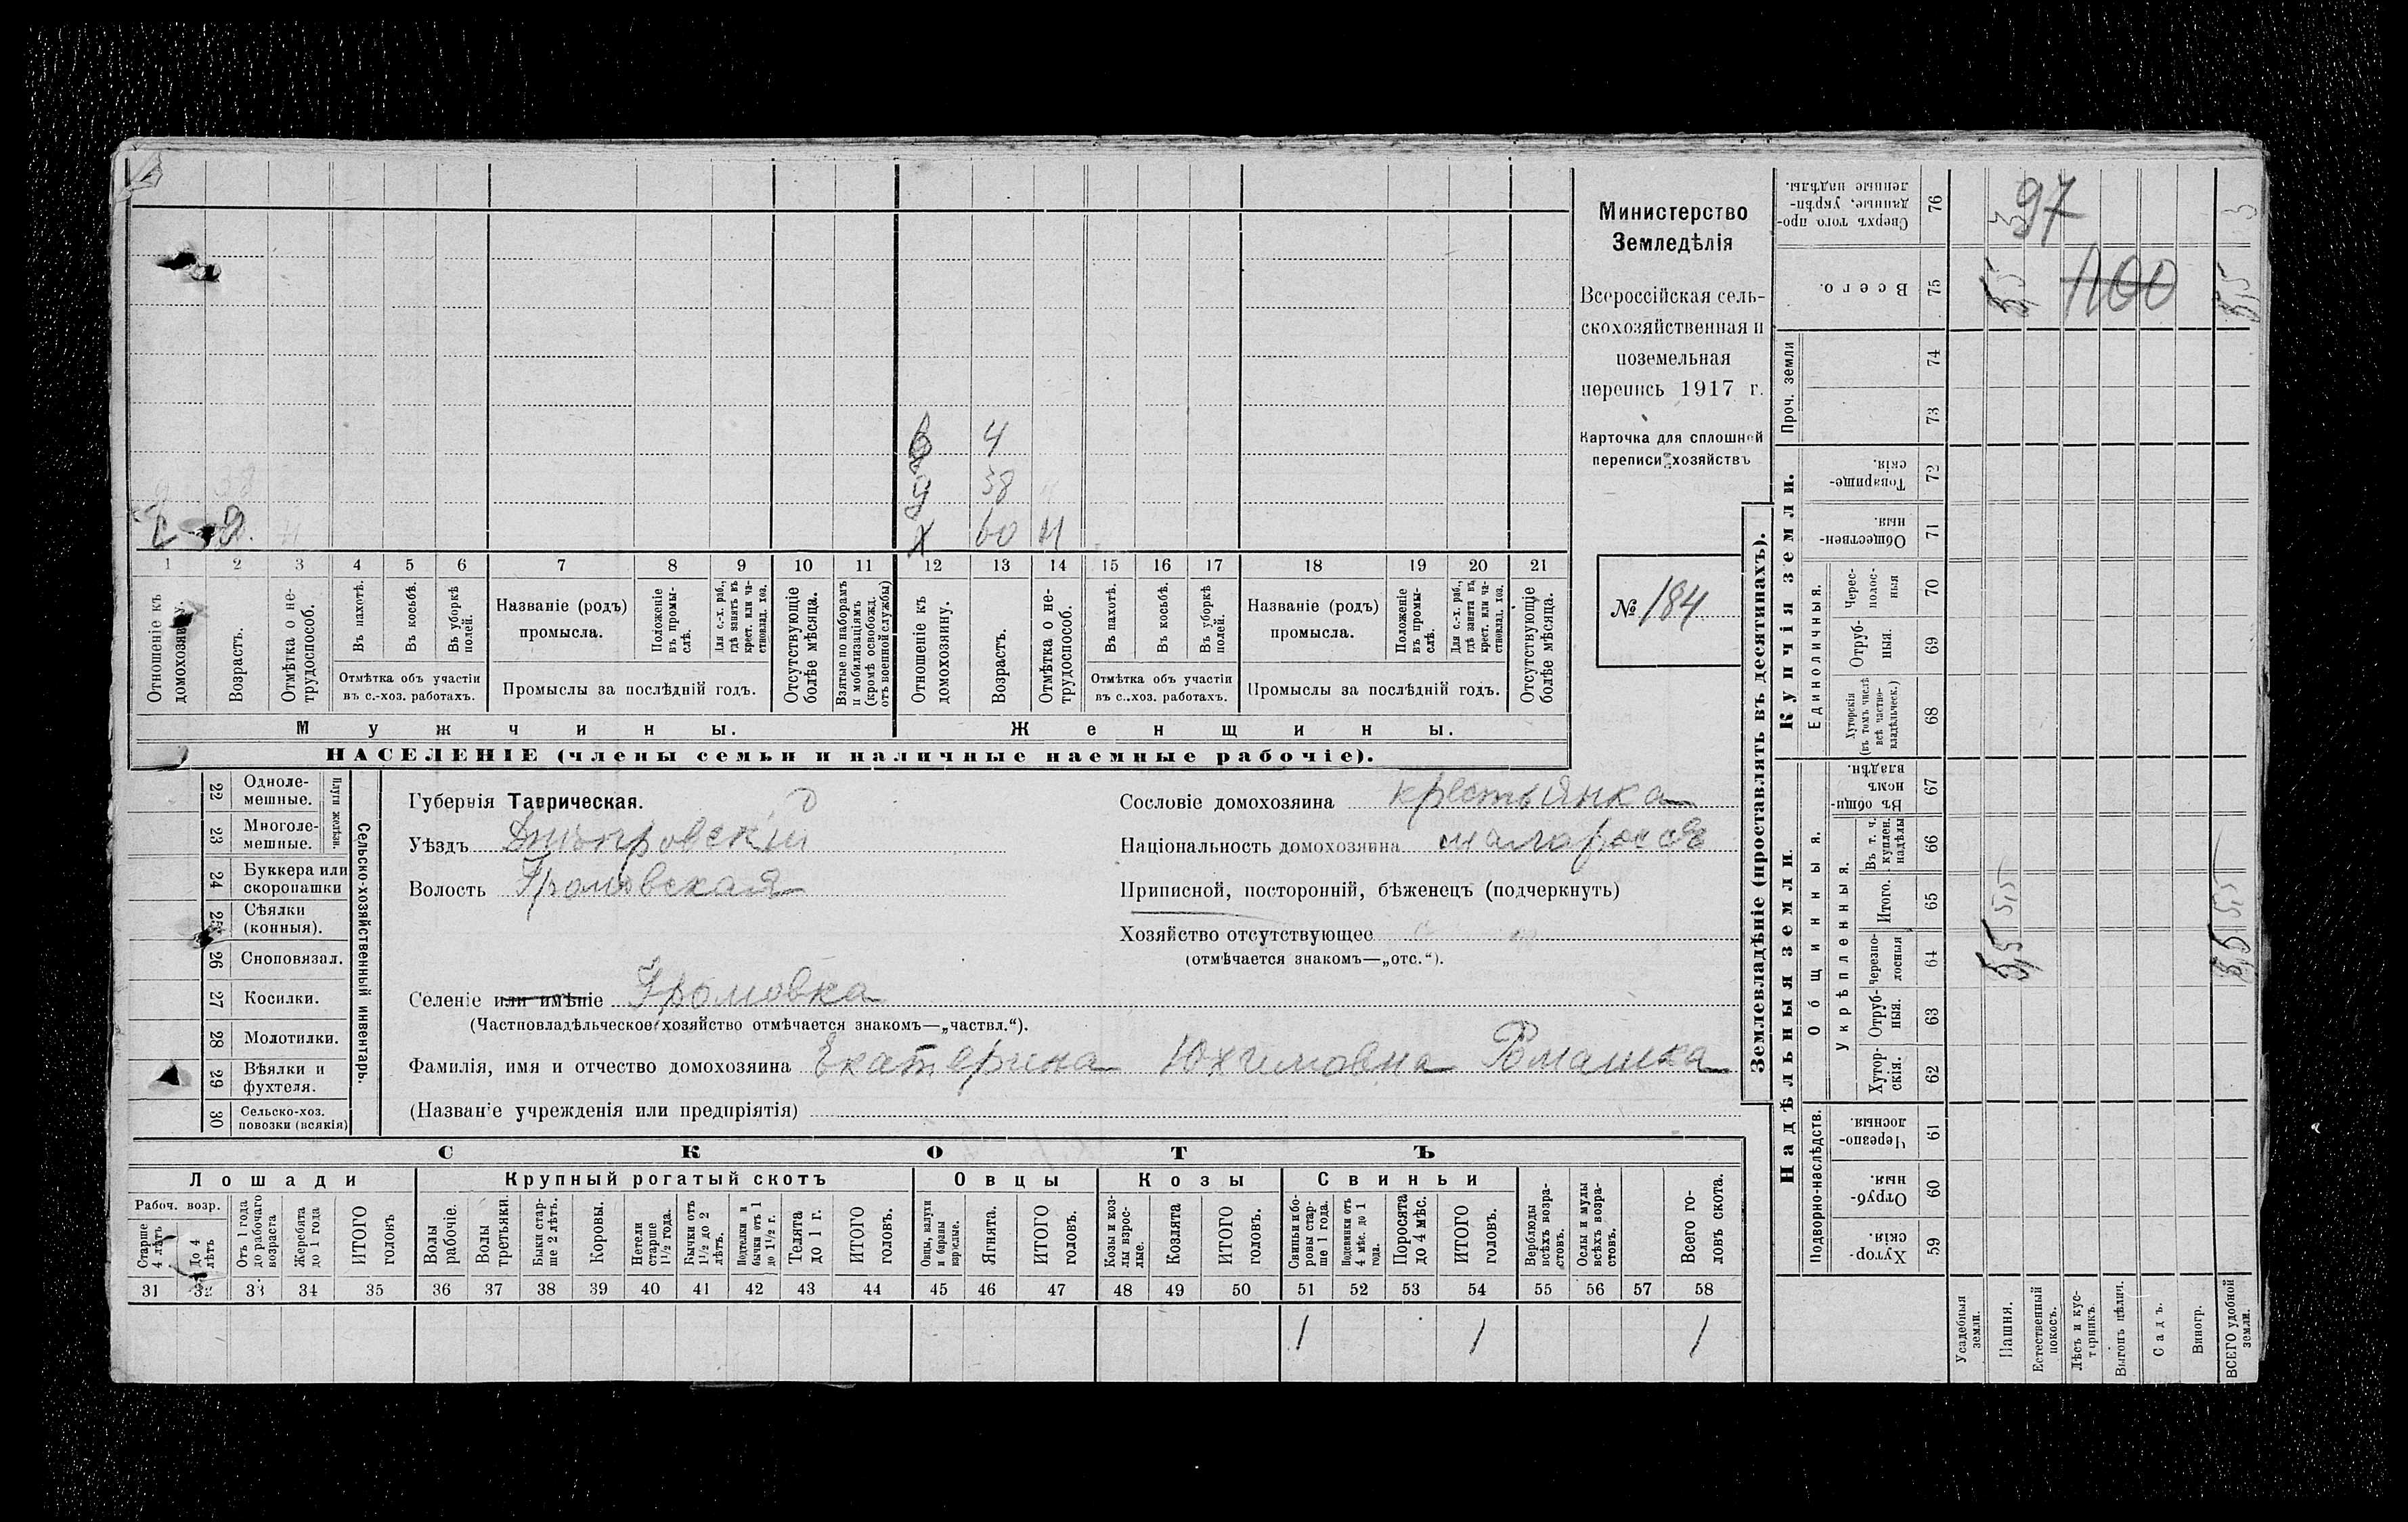 Министерство
Земледѣлія
Всероссійская сель-
скохозяйственная и
поземельная
перепись 1917 г.
Карточка для сплошной
переписи хозяйствъ
№ 184
4
38
х 60 н
1 2 3 4 5 6 7 8 9 10 11 12 13 14 15 16 17 18 19 20 21
Отношеніе къ домохозяину.
Возрастъ.
Отмѣтка о не-
трудоспособ.
Въ пахотѣ.
Въ косьбѣ.
Въ уборкѣ
полей.
Отмѣтка объ участіи
въ с.-хоз. работахъ.
Названіе (родъ)
промысла.
Положеніе
въ промы-
слѣ.
Для с.-х. раб.,
гдѣ занятъ въ
крест. или ча-
стновлад. хоз.
Промыслы за послѣдній годъ.
Отсутствующіе
болѣе мѣсяца.
Взятые по наборамъ
и мобилизаціямъ
(кромѣ освобожд.
отъ военной службы)
Отношеніе къ
домохозяину.
Возрастъ.
Отмѣтка о не-
трудоспособ.
Въ пахотѣ.
Въ косьбѣ.
Въ уборкѣ
полей.
Отмѣтка объ участіи
въ с.-хоз. работахъ.
Названіе (родъ)
промысла.
Положеніе
въ промы-
слѣ.
Для с.-х. раб.,
гдѣ занята въ
крест. или ча-
стновлад. хоз.
Промыслы за послѣдній годъ.
Отсутствующіе
болѣе мѣсяца.
Мужчины.
Женщины.
НАСЕЛЕНІЕ (члены семьи и наличные наемные рабочіе).
22 Одноле-
мешные.
23 Многоле-
мешные.
Плуги желѣзн.
24 Буккера или
скоропашки
25 Сѣялки
(конныя).
26 Сноповязал.
27 Косилки.
28 Молотилки.
29 Вѣялки и
фухтеля.
30 Сельско-хоз.
повозки (всякія)
Сельско-хозяйственный инвентарь.
Губернія Таврическая.
Уѣздъ Днѣпровскій
Волость Громовская
Селеніе или имѣніе Громовка
(Частновладѣльческое хозяйство отмѣчается знакомъ—„частвл.“).
Фамилія, имя и отчество домохозяина Екатерина Юхимовна Ромашка
(Названіе учрежденія или предпріятія)
Сословіе домохозяина крестьянка
Національность домохозяина малороссъ
Приписной, посторонній, бѣженецъ (подчеркнуть)
Хозяйство отсутствующее
(отмѣчается знакомъ—„отс.“).
СКОТЪ
Лошади
Рабоч. возр.
Старше
4 лѣтъ
До 4
лѣтъ
Отъ 1 года
до рабочаго
возраста
Жеребята
до 1 года
ИТОГО
головъ
Крупный рогатый скотъ
Волы
рабочіе.
Волы
третьяки.
Быки стар-
ше 2 лѣтъ.
Коровы.
Нетели
старше
1½ года.
Бычки отъ
1½ до 2
лѣтъ.
Подтелки и
бычки отъ 1
до 1½ г.
Телята
до 1 г.
ИТОГО
головъ.
Овцы
Овцы, валухи
и бараны
взрослые.
Ягнята.
ИТОГО
головъ.
Козы
Козы и коз-
лы взрос-
лые.
Козлята
ИТОГО
головъ.
Свиньи
Свиньи и бо-
ровы стар-
ше 1 года.
Подсвинки отъ
4 мѣс. до 1
года.
Поросята
до 4 мѣс.
ИТОГО
головъ.
Верблюды
всѣхъ возра-
стовъ.
Ослы и мулы
всѣхъ возра-
стовъ.
Всего го-
ловъ скота.
31 32 33 34 35 36 37 38 39 40 41 42 43 44 45 46 47 48 49 50 51 52 53 54 55 56 57 58
1 1 1
Землевладѣніе (проставлять въ десятинахъ).
Купчія земли.
Надѣльныя земли
Сверхъ того про-
данные, укрѣп-
ленные надѣлы.
76
3
97
3
Всего.
75
5,5
1100
5,5
Проч. земли
74
73
Товарище-
скія.
72
Обществен-
ныя.
71
Единоличныя.
Черес-
полос-
ныя
70
Отруб-
ныя.
69
Хуторскія
(въ томъ числѣ
всѣ частно-
владѣльческ.)
68
Общинныя.
Въ общи-
номъ
владѣн.
67
Укрѣпленныя.
Въ т. ч.
куплен.
надѣлы
66
Итого.
65
5,5
5,5
Черезпо-
лосныя
64
5,5
5,5
Отруб-
ныя.
63
Хутор-
скія.
62
Подворно-наслѣдств.
Черезпо-
лосныя.
61
Отруб-
ныя.
60
Хутор-
скія.
59
Усадебныя
земли.
Пашня.
Естественный
покосъ.
Лѣсъ и кус-
тарникъ.
Выгонъ цѣлин.
Садъ.
Виногр.
ВСЕГО удобной
земли.